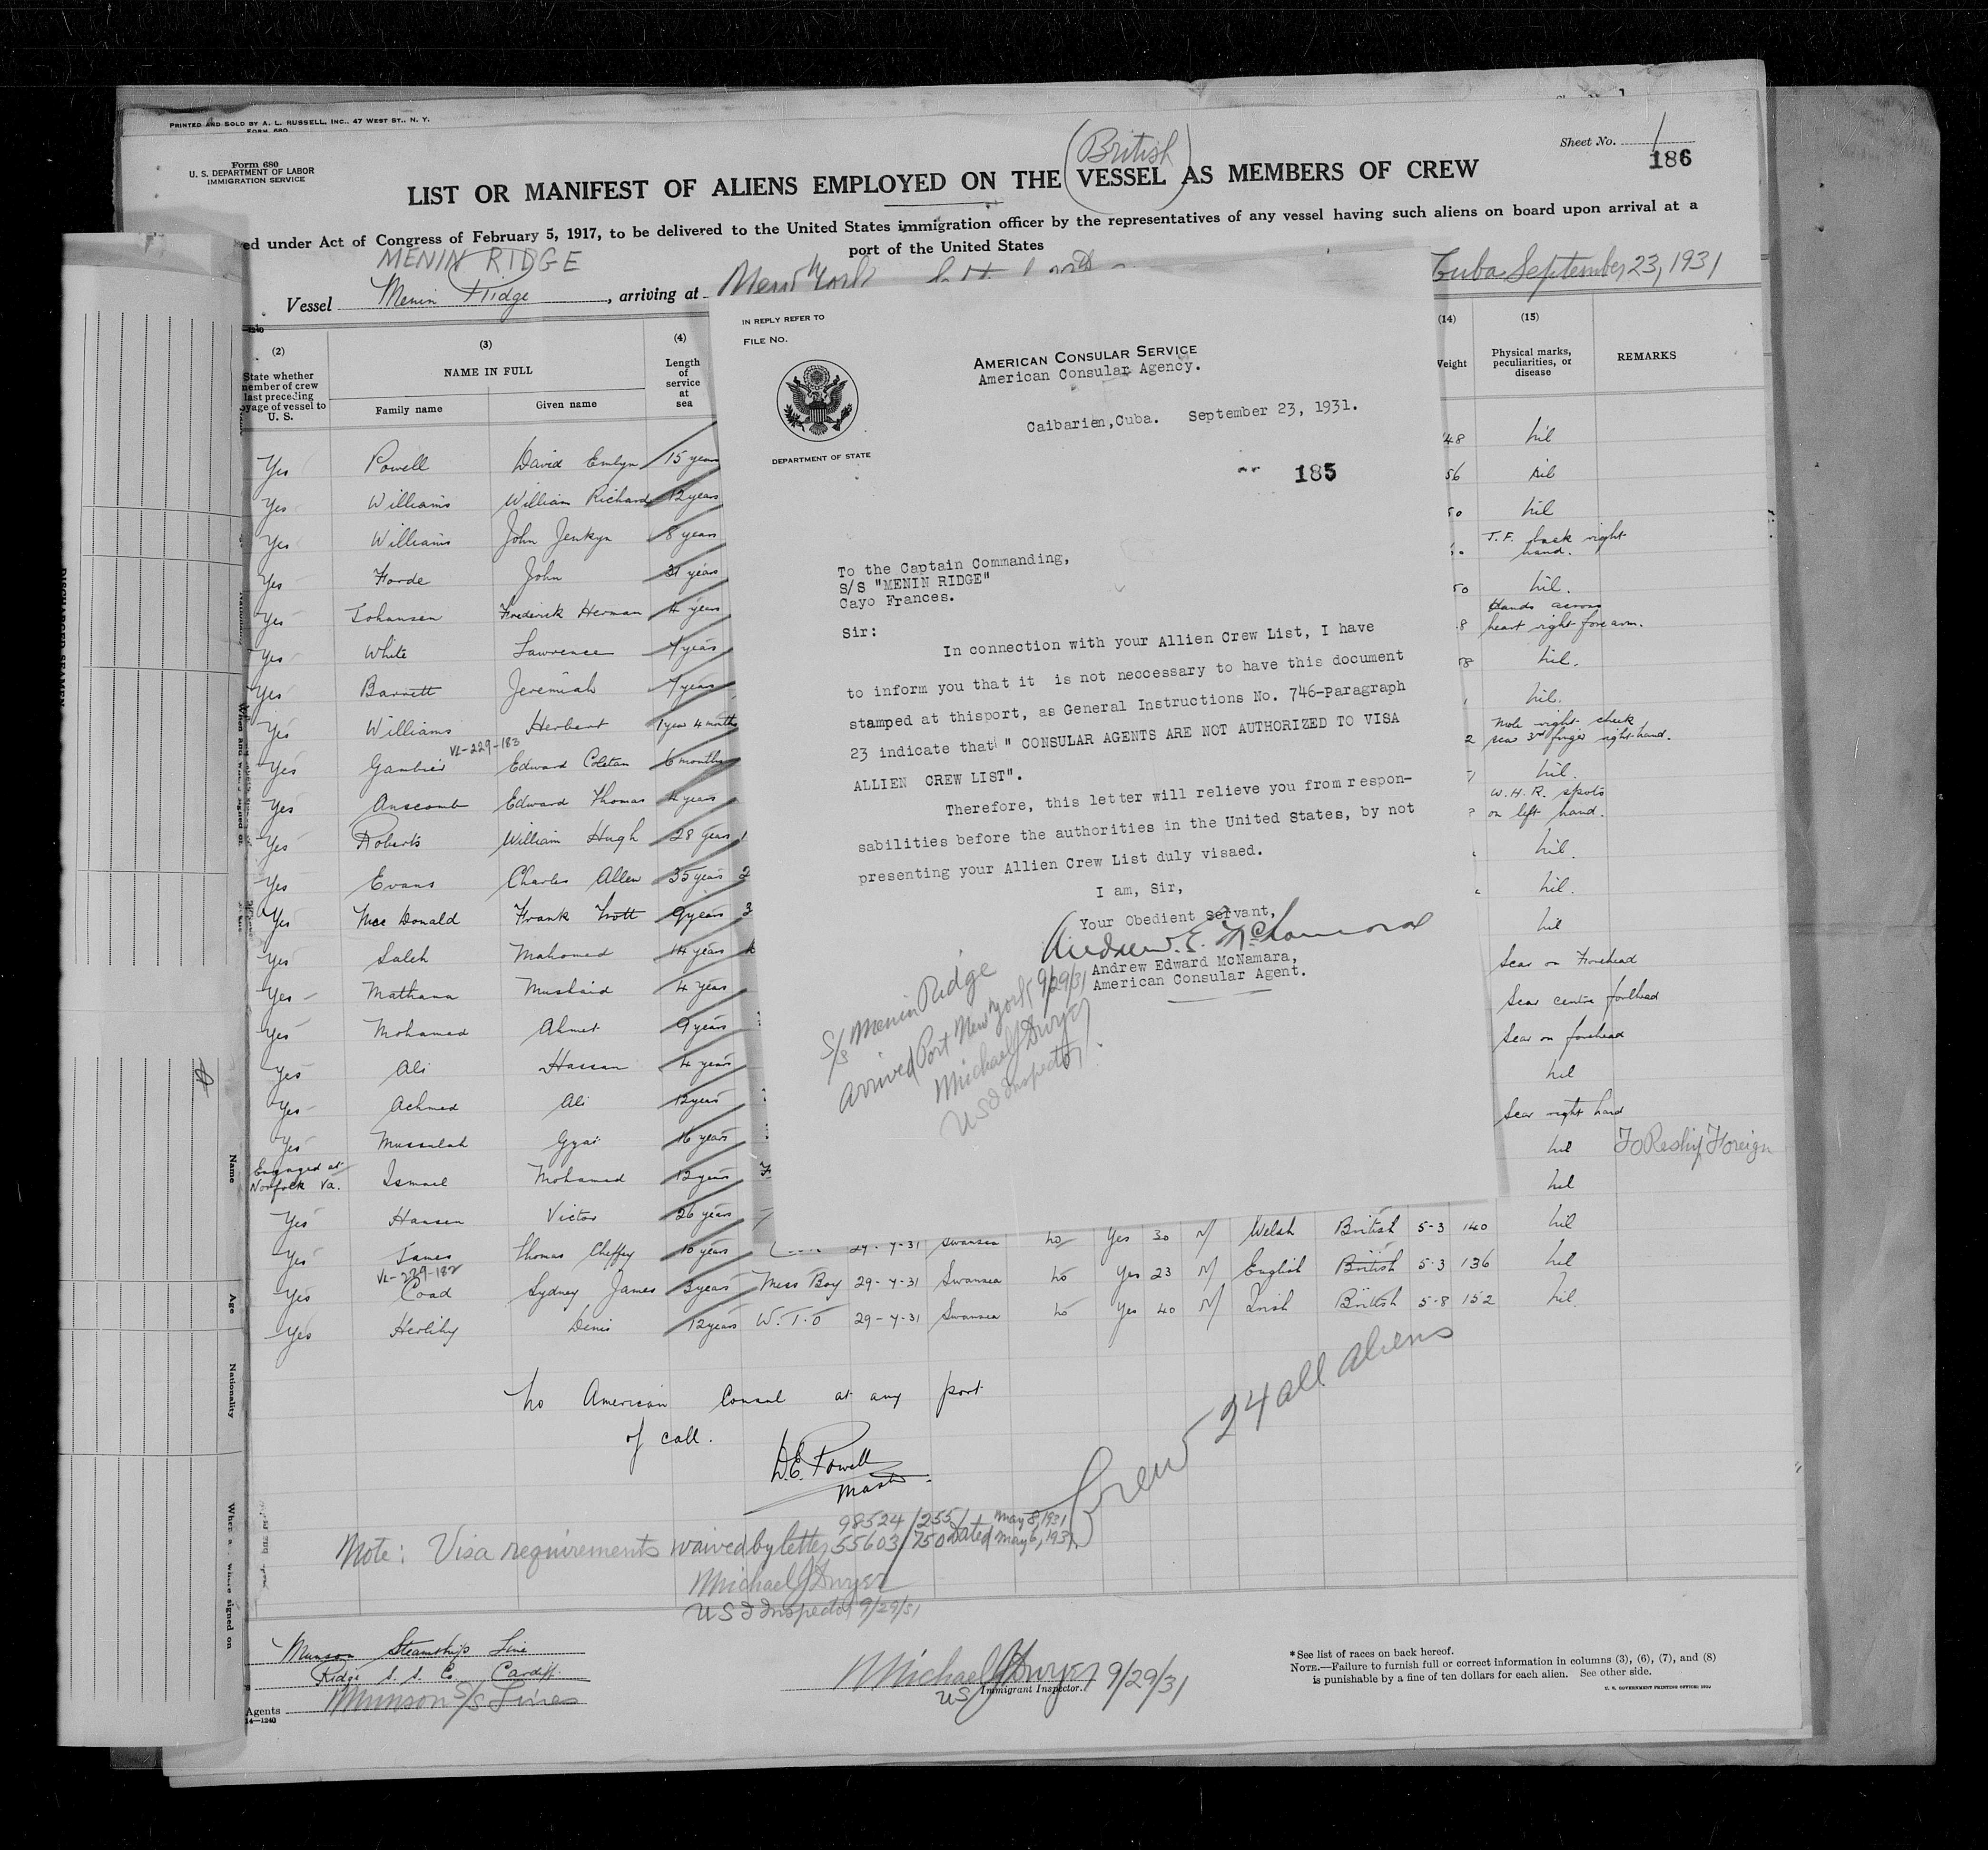 PRINTED AND SOLD BY A. L. RUSSELL, INC., 47 WEST ST., N. Y.
FORM 680
Form 680
U. S. DEPARTMENT OF LABOR
IMMIGRATION SERVICE
Sheet No. 1
186
(British)
LIST OR MANIFEST OF ALIENS EMPLOYED ON THE VESSEL AS MEMBERS OF CREW
ed under Act of Congress of February 5, 1917, to be delivered to the United States immigration officer by the representatives of any vessel having such aliens on board upon arrival at a
port of the United States
MENIN RIDGE
Vessel Menin Ridge, arriving at New York
Cuba September 23, 1931
(2) (3) (4) (14) (15)
State whether member of crew last preceding voyage of vessel to U. S.
NAME IN FULL
Family name Given name
Length of service at sea
Weight
Physical marks, peculiarities, or disease
REMARKS
Yes Powell David Emlyn 15 years 48 nil
Yes Williams William Richard 12 years 56 nil
Yes Williams John Jenkyn 8 years 50 nil
Yes Forde John 31 years T.F. back right hand.
Yes Johansen Frederick Herman 4 years 50 nil.
Yes White Lawrence 7 years 8 Hands across heart right forearm.
Yes Barrett Jeremiah 7 years 58 nil.
Yes Williams Herbert 1 year 4 months nil.
VL-229-183
Yes Gambier Edward Colstan 6 months 2 mole right cheek scar 3rd finger right hand.
Yes Anscomb Edward Thomas 4 years nil.
Yes Roberts William Hugh 28 years W.H.R. spots on left hand.
Yes Evans Charles Allen 35 years nil.
Yes MacDonald Frank Trott 9 years nil.
Yes Saleh Mahomed 14 years nil
Yes Mathana Mushaid 4 years Scar on Forehead
Yes Mohamed Ahmet 9 years Scar centre forehead
Yes Ali Hassan 4 years Scar on forehead
Yes Achmed Ali 12 years nil
Yes Mussalah Gyai 16 years Scar right hand
Engaged at Norfolk Va. Ismael Mohamed 12 years nil To Reship Foreign
Yes Hansen Victor 26 years nil
Yes James Thomas Cheffey 16 years 29-7-31 Swansea no Yes 30 M Welsh British 5-3 140 nil
VL-229-182
Yes Coad Sydney James 3 years Mess Boy 29-7-31 Swansea no Yes 23 M English British 5-3 136 nil
Yes Herlihy Denis 12 years W.T.O 29-7-31 Swansea no Yes 40 M Irish British 5-8 152 nil.
IN REPLY REFER TO
FILE NO.
DEPARTMENT OF STATE
AMERICAN CONSULAR SERVICE
American Consular Agency.
Caibarien,Cuba. September 23, 1931.
185
To the Captain Commanding,
S/S "MENIN RIDGE"
Cayo Frances.
Sir:
In connection with your Allien Crew List, I have
to inform you that it is not neccessary to have this document
stamped at thisport, as General Instructions No. 746-Paragraph
23 indicate that " CONSULAR AGENTS ARE NOT AUTHORIZED TO VISA
ALLIEN CREW LIST".
Therefore, this letter will relieve you from respon-
sabilities before the authorities in the United States, by not
presenting your Allien Crew List duly visaed.
I am, Sir,
Your Obedient Servant,
Andrew E. McNamara
Andrew Edward McNamara,
American Consular Agent.
S/s Menin Ridge
Arrived Port New York 9/29/31
Michael J Dwyer
US I Inspector.
No American Consul at any port
of call.
D.E. Powell
Master.
Crew 24 all aliens
98524/255 May 8, 1931
Note: Visa requirements waived by letter 55603/750 Dated May 6, 1931
Michael J Dwyer
US I Inspector 9/29/31
Munson Steamship Line
Ridge S. S. Co Cardiff.
Agents Munson S/S Lines
14—1240
Michael J Dwyer 9/29/31
US Immigrant Inspector.
*See list of races on back hereof.
NOTE.—Failure to furnish full or correct information in columns (3), (6), (7), and (8)
is punishable by a fine of ten dollars for each alien. See other side.
U. S. GOVERNMENT PRINTING OFFICE: 1930
DISCHARGED SEAMEN
Name
Age
Nationality
When and where signed on